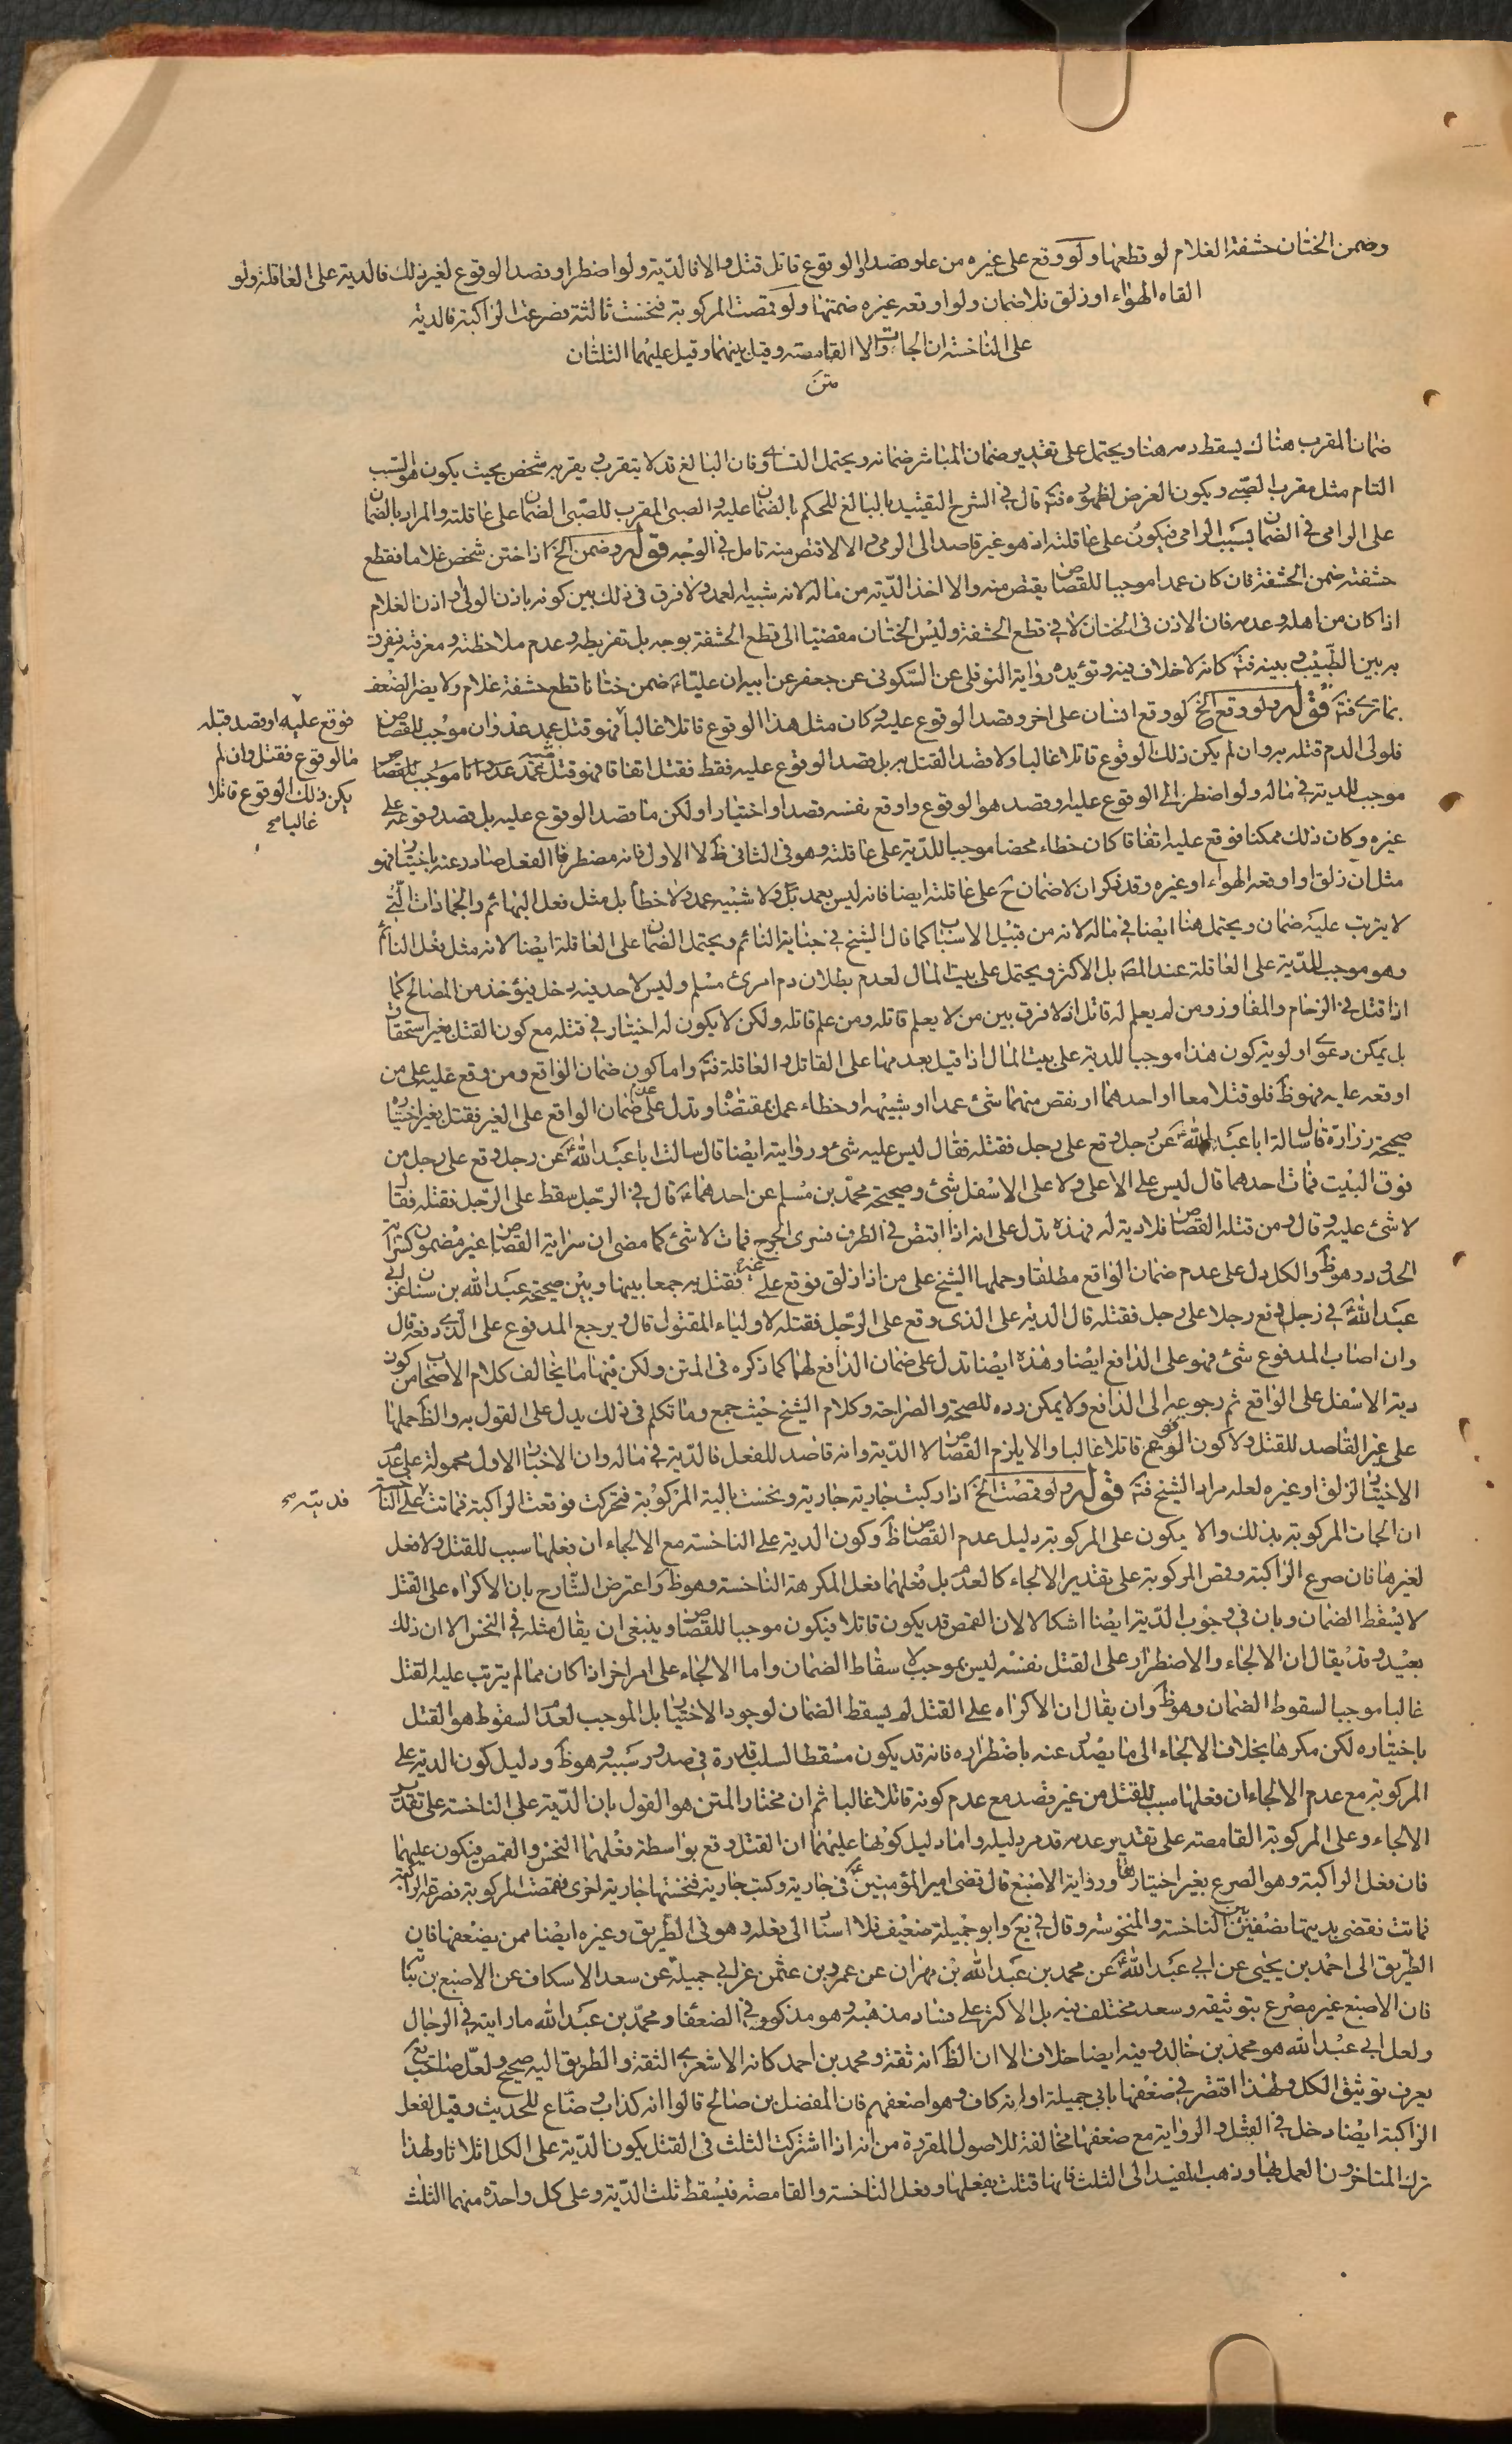 وضمن الختان حشفة الغلام لو قطعها ولو وقع على غيره من علو وقصد الوقوع قاتل قتل والا فالدّية ولو اضطر او قصد الوقوع لغير ذلك فالدية على العاقلة ولو
القاه الهواء او زلق فلا ضمان ولو اوقعه غيره ضمنها ولو قمصت المركوبة فنخست ثالثة فصرعت الراكبة فالدية
على الناخسة ان الجات والا القامصة وقيل بينهما وقيل عليهما الثلثان
متن
ضمان المقرب هناك يسقط دمه هنا ويحتمل على تقدير ضمان المباشر ضمانه ويحتمل التساوى فان البالغ قد لا يتقرب ويقربه شخص بحيث يكون هو السبب
التام مثل مقرب الصبي ويكون الغرض لظهوره فتم قال في الشرح التقييد بالبالغ للحكم بالضمان عليه والصبى المقرب للصبى الضمان على عاقلته والمراد بالضمان
على الرامى في الضمان بسبب الرامى فيكون على عاقلته اذ هو غير قاصد الى الرمى والا لاقتص منه تامل في الوجه قوله وضمن الخ اذا ختن شخص غلاما فقطع
حشفته ضمن الحشفة فان كان عمدا موجبا للقصاص يقتص منه والا اخذ الدّية من ماله لانه شبيه لعمد ولا فرق في ذلك بين كونه باذن الولى واذن الغلام
اذا كان من اهله وعدمه فان الاذن في الختان لا في قطع الحشفة وليس الختان مقضيا الى قطع الحشفة بوجه بل تفريطه وعدم ملاحظته ومعرفته فيفرق
به بين الطبيب وبينه فتم كانه لا خلاف فيه وتؤيده رواية النوفلى عن السكونى عن جعفر عن ابيه ان عليا ع ضمن ختانا قطع حشفة غلام ولا يضر الضعف
بما ترى فتم قوله ولو وقع الخ لو وقع انسان على اخر وقصد الوقوع عليه وكان مثل هذا الوقوع قاتلا غالبا فهو قتل عمد عدوان موجب للقصاص
فلولى الدم قتله به وان لم يكن ذلك الوقوع قاتلا غالبا ولا قصد القتل به بل قصد الوقوع عليه فقط فقتل اتفاقا فهو قتل شبيه عمد عدوانا موجب للقصاص
موجب للدية في ماله ولو اضطر الى الوقوع عليه وقصد هو الوقوع واوقع نفسه قصدا واختيارا ولكن ما قصد الوقوع عليه بل قصد وقوعه على
غيره وكان ذلك ممكنا فوقع عليه اتفاقا كان خطاء محضا موجبا للدّية على عاقلته وهو في الثانى ظ لا الاول فانه مضطر فالفعل صادر عنه باختيار فهو
مثل ان زلق او اوقعه الهواء او غيره وقد ذكر ان لا ضمان ح على عاقلته ايضا فانه ليس بعمد بل ولا شبيه عمد ولا خطأ بل مثل فعل البهائم والجمادات التي
لا يترتب عليه ضمان ويحتمل هنا ايضا في ماله لانه من قبيل الاسباب كما قال الشيخ في جناية النائم ويحتمل الضمان على العاقلة ايضا لانه مثل فعل النائم
وهو موجب للدّية على العاقلة عند المص بل الاكثر ويحتمل على بيت المال لعدم بطلان دم امرئ مسلم وليس لاحد فيه دخل فيؤخذ من المصالح كما
اذا قتل في الزحام والمفاوز ومن لم يعلم له قاتل اذ لا فرق بين من لا يعلم قاتله ومن علم قاتله ولكن لا يكون له اختيار في قتله مع كون القتل بغير استحقاق
بل يمكن دعوى اولوية كون هذا موجبا للدية على بيت المال اذا قيل بعدمها على القاتل والعاقلة فتم واما كون ضمان الواقع ومن وقع عليه على من
اوقعه عليه فهو ظ فلو قتلا معا او احدهما او نقص منهما شئ عمدا او شبيهه او خطاء عمل بمقتضاه وتدل على عدم ضمان الواقع على الغير فقتل بغير اختياره
صحيحة زرارة قال سالة ابا عبد الله ع عن رجل وقع على رجل فقتله فقال ليس عليه شئ ورواية ايضا قال سالت ابا عبد الله ع عن رجل وقع على رجل من
فوق البيت فمات احدهما قال ليس على الاعلى ولا على الاسفل شئ وصحيحة محمد بن مسلم عن احدهما ع قال في الرجل يسقط على الرجل فقتله فقال
لا شئ عليه وقال ومن قتله القصاص فلا دية له فهذه تدل على انه اذا اقتص في الطرف فسرى الجرح فمات لا شئ كما مضى ان سراية القصاص غير مضمون كسراية
الحدود وهو ظ والكل يدل على عدم ضمان الواقع مطلقا وحملها الشيخ على من اذا زلق فوقع على غيره فقتل به جمعا بينها وبين صحيحة عبد الله بن سنان عن ابى
عبد الله ع في رجل دفع رجلا على رجل فقتله قال الدية على الذى وقع على الرجل فقتله لاولياء المقتول قال ويرجع المدفوع على الذى دفعه قال
وان اصاب المدفوع شئ فهو على الدافع ايضا وهذه ايضا تدل على ضمان الدافع لهما كما ذكره في المتن ولكن فيها ما يخالف كلام الاصحاب من كون
دية الاسفل على الواقع ثم رجوعه الى الدافع ولا يمكن رده للصحة والصراحة وكلام الشيخ حيث جمع وما تكلم في ذلك يدل على القول به والظ حملها
على غير القاصد للقتل ولا كون الوقوع قاتلا غالبا والا يلزم القصاص لا الدّية وانه قاصد للفعل فالدّية في ماله وان الاخبار الاول محمولة على عدم
الاختيار كالزلق او غيره لعله مراد الشيخ فتم قوله ولو قمصت الخ اذا ركبت جارية جارية ونخست ثالثة المركوبة فتحركت فوقعت الراكبة فماتت على الناخسة
ان الجات المركوبة بذلك والا يكون على المركوبة دليل عدم القصاص ظ وكون الدية على الناخسة مع الالجاء ان فعلها سبب للقتل ولا فعل
لغيرها فان صرع الراكبة وقمص المركوبة على تقدير الالجاء كالعدم بل فعلهما فعل المكرهة الناخسة وهو ظ واعترض الشارح بان الاكراه على القتل
لا يسقط الضمان وبان في وجوب الدّية ايضا اشكالا لان القمص قد يكون قاتلا فيكون موجبا للقصاص وينبغى ان يقال مثله في النخس الا ان ذلك
بعيد وقد يقال ان الالجاء والاضطرار على القتل نفسه ليس بموجب لاسقاط الضمان واما الالجاء على امر اخر اذا كان مما لم يترتب عليه القتل
غالبا موجبا لسقوط الضمان وهو ظ وان يقال ان الاكراه على القتل لم يسقط الضمان لوجود الاختيار بل الموجب لعدم السقوط هو القتل
باختياره لكن مكرها بخلاف الالجاء الى ما يصدر عنه باضطراره فانه قد يكون مسقطا لسلب قدرة في صدور سببه وهو ظ ودليل كون الدية على
المركوبة مع عدم الالجاء ان فعلها سبب للقتل من غير قصد مع عدم كونه قاتلا غالبا ثم ان مختار المتن هو القول بان الدّية على الناخسة على تقدير
الالجاء وعلى المركوبة القامصة على تقدير عدمه قد مر دليله واما دليل كونها عليهما ان القتل وقع بواسطة فعلهما النخس والقمص فيكون عليهما
فان فعل الراكبة وهو الصرع بغير اختيارها ورواية الاصبغ قال قضى امير المؤمنين ع في جارية ركبت جارية فنخستها جارية اخرى فقمصت المركوبة فصرعت الراكبة
فماتت فقضى بديتها نصفين بين الناخسة والمنخوسة وقال في يع وابو جميلة ضعيف فلا استناد الى نقله وهو في الطريق وغيره ايضا ممن يضعفها فان
الطريق الى احمد بن يحيى عن ابى عبد الله ع عن محمد بن عبد الله بن مهران عن عمرو بن عثمن عن ابى جميلة عن سعد الاسكاف عن الاصبغ بن نباتة
فان الاصبغ غير مصرع بتوثيقه وسعد مختلف فيه بل الاكثر على فساد مذهبه وهو مذكور في الضعفا ومحمد بن عبد الله ما رايته في الرجال
ولعل ابى عبد الله هو محمد بن خالد وفيه ايضا خلاف الا ان الظ انه ثقة ومحمد بن احمد كانه الاشعرى الثقة والطريق اليه صحيح ولعل صاحب يع
يعرف توثيق الكل ولهذا اقتصر في ضعفها بابى جميلة او انه كاف وهو اضعفهم فان المفضل بن صالح قالوا انه كذاب وضّاع للحديث وقيل لفعل
الراكبة ايضا دخل في القتل والرواية مع ضعفها مخالفة للاصول المقررة من انه اذا اشتركت الثلث في القتل يكون الدّية على الكل اثلاثا ولهذا
ترك المتاخرون العمل بها وذهب المفيد الى الثلث فانها قتلت بفعلها وفعل الناخسة والقامصة فيسقط ثلث الدّية وعلى كل واحدة منهما الثلث
فوقع عليه او قصد قتله
مالوقوع فقتل وان لم
يكن ذلك الوقوع قاتلا
غالبا صح
فديته صح